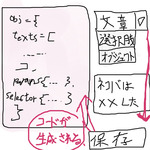 obj = {
texts = [
……
],
maps = {… },
selector {… }
}
コードが
生成される
文章
選択肢
オブジェクト
ネコバは
××した
保存